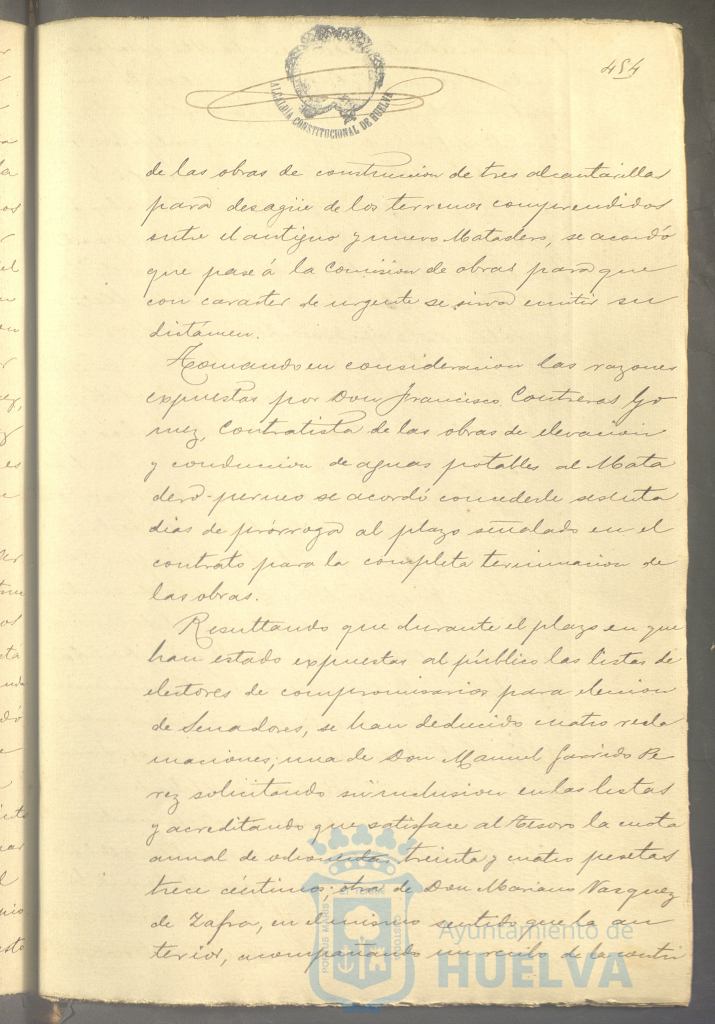 454
ALCALDIA CONSTITUCIONAL DE HUELVA
de las obras de construccion de tres alcantarillas
para desagüe de los terrenos comprendidos
entre el antiguo y nuevo Matadero, se acordó
que pase á la Comision de obras para que
con caracter de urgente se sirva emitir su
dictámen.
Tomando en consideracion las razones
expuestas por Don Francisco Contreras Go
mez, Contratista de las obras de elevacion
y conduccion de aguas potables al Mata
dero-perneo se acordó concederle sesenta
dias de prórroga al plazo señalado en el
contrato para la completa terminacion de
las obras.
Resultando que durante el plazo en que
han estado expuestas al público las listas de
electores de compromisarios para eleccion
de Senadores, se han deducido cuatro recla
maciones; una de Don Manuel Garrido Pe
rez solicitando su inclusion en las listas
y acreditando que satisface al Tesoro la cuota
anual de ochocientas treinta y cuatro pesetas
trece céntimos; otra de Don Mariano Vazquez
de Zafra, en el mismo sentido que la an
terior, acompañando un recibo de la contri
PORTUS MARIS ET TERRAE CUSTODIA
Ayuntamiento de
HUELVA